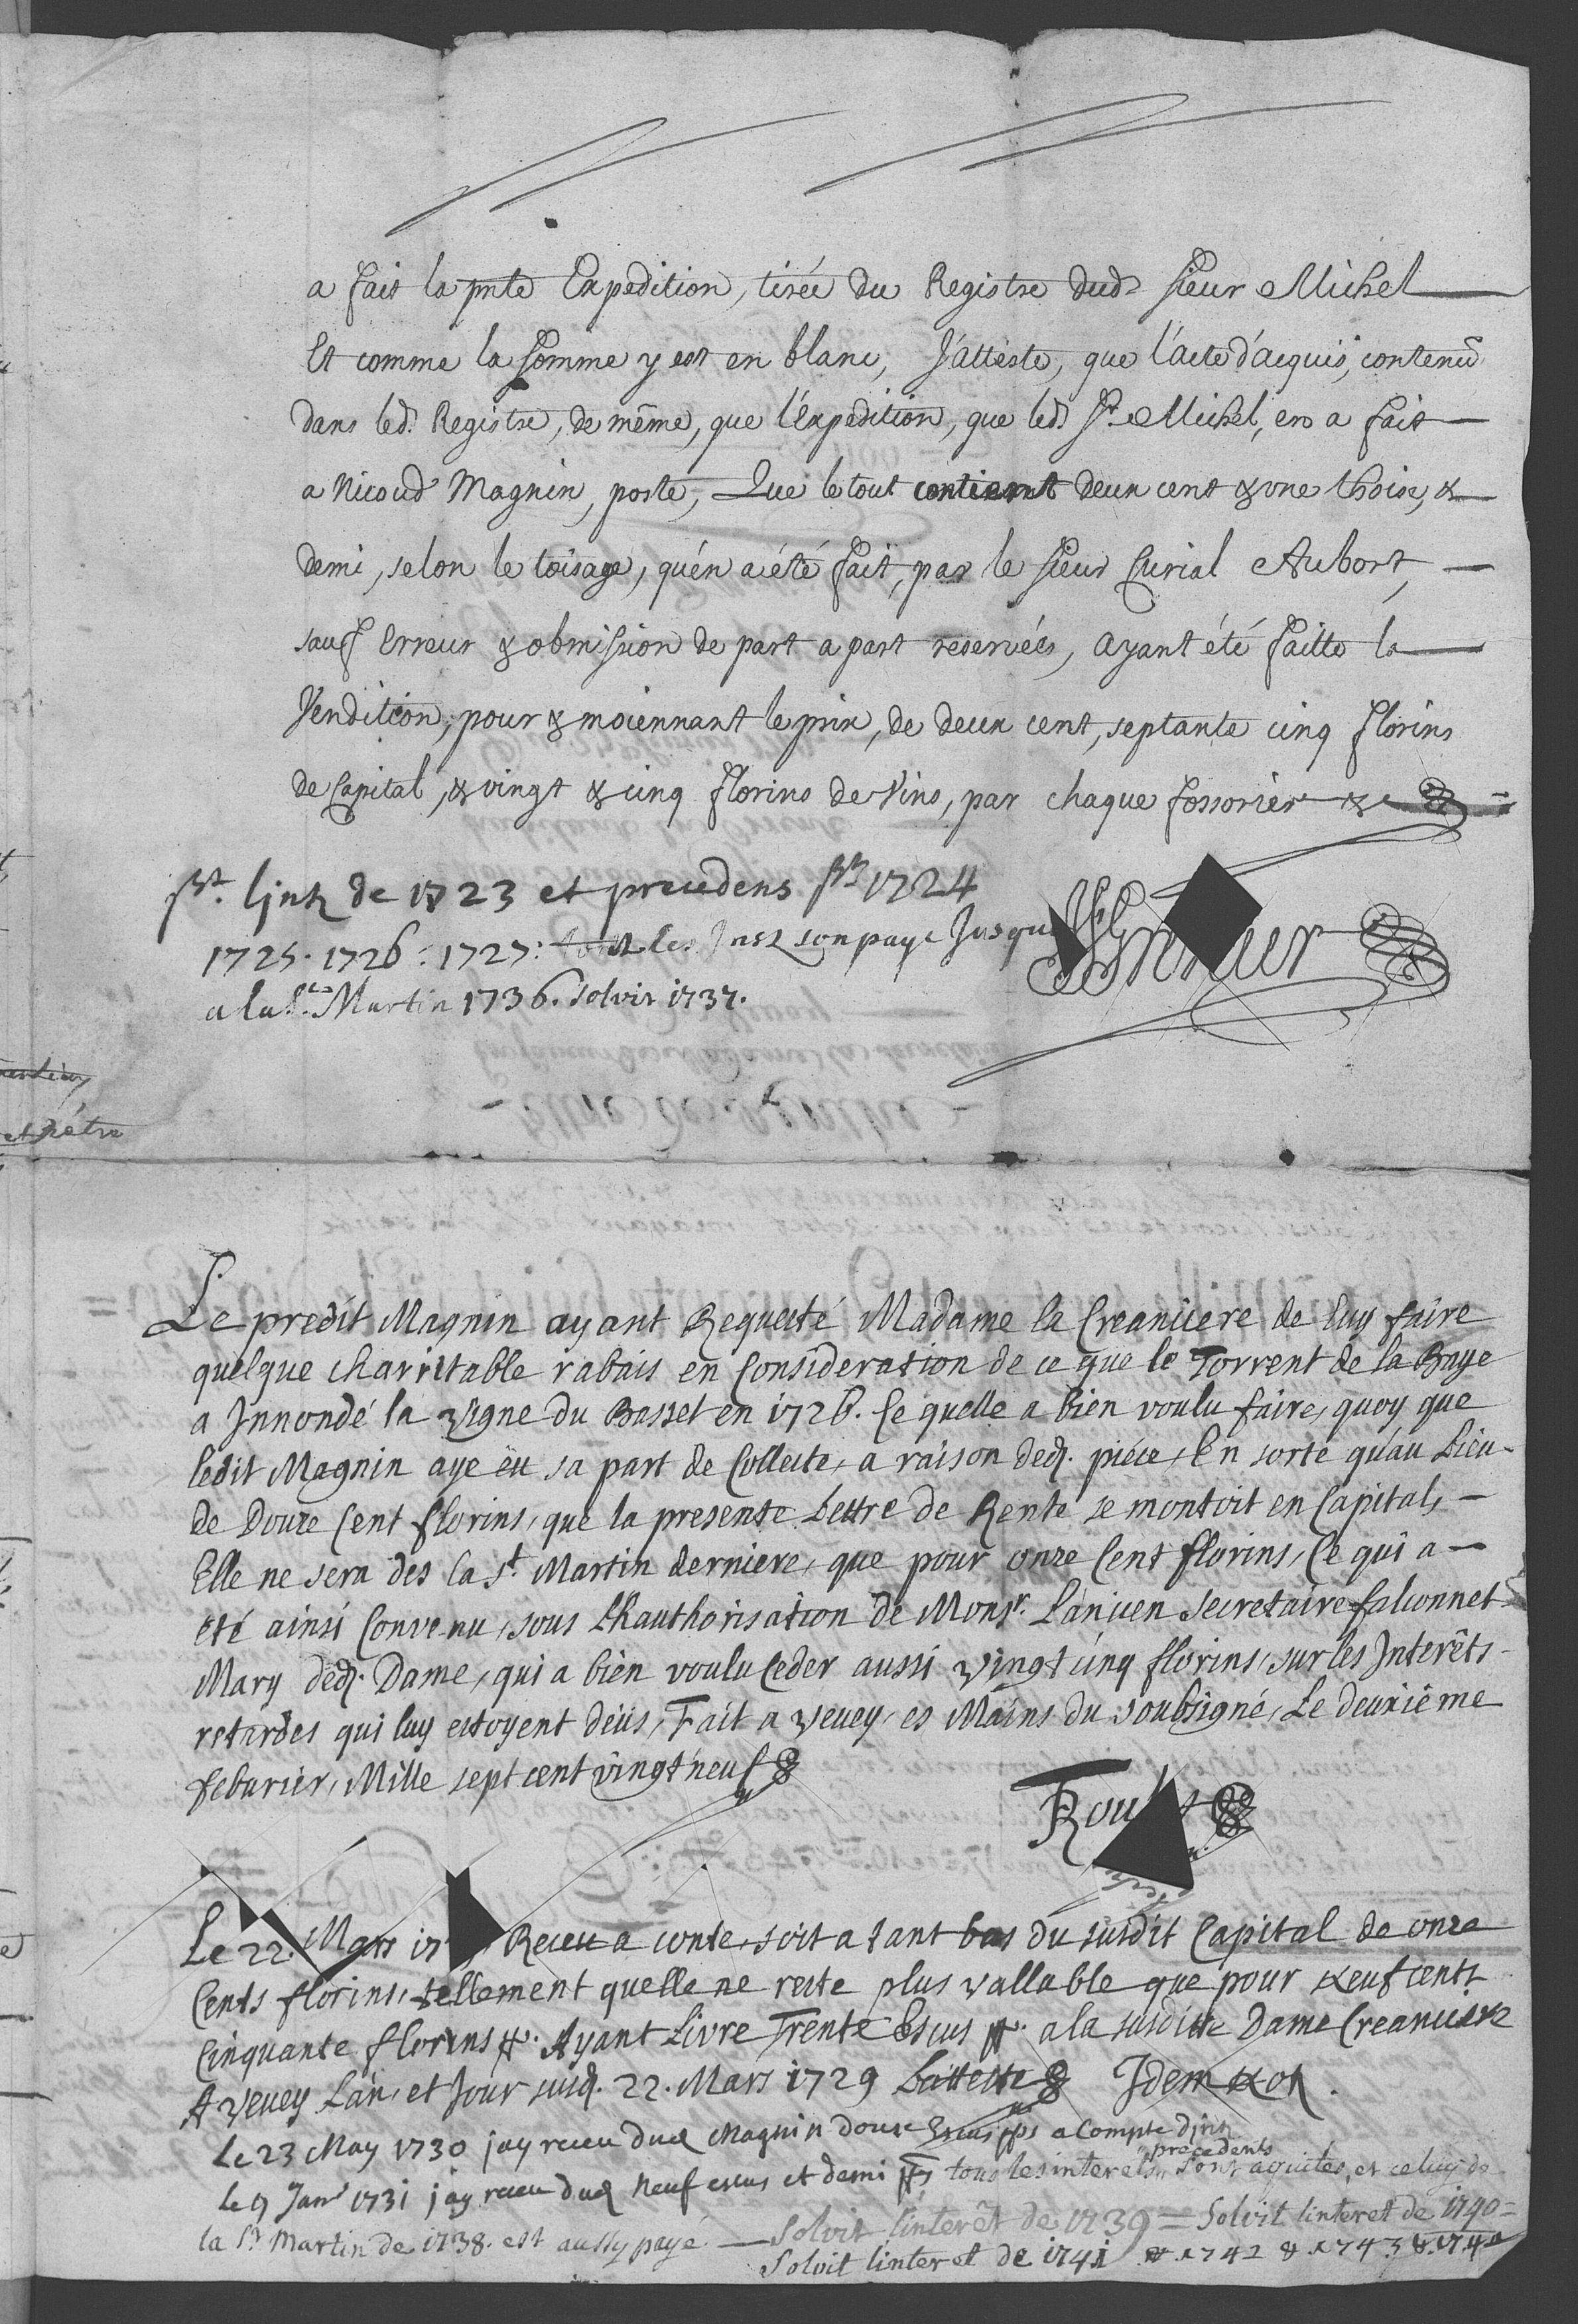 a fait la pnte Expedition, tirée du Registre dud. Sieur Michel
Et comme la somme y est en blanc, J'atteste, que l'acte d'acquis, contenu
dans led. Registre, de même, que l'Expedition, que led. Sr. Michel, en a fait
a Nicoud Magnin, porte, Que le tout contienrt deux cent & une thoise, &
demi, selon le toisage, qu'én a été fait, par le sieur Curial Aubort,
sauf Erreur & obmission de part a part reservées, ayant été faitte la
Vendition, pour & moiennant le prix, de deux cent, septante cinq florins
de Capital, & vingt & cinq florins de Vins, par chaque fossorier &c
st. l'jnth de 1723 et precedens st 1724
1725. 1726. 1727: les Inst son paye Jusque
a la St. Martin 1736. solvit 1737.
Le predit Magnin ayant Requesté Madame la Creanciere de luy faire
quelque charritable rabais en Consideration de ce que le Torrent de la Baye
a Innondé la vigne du Basset en 1726. Ce quelle a bien voulu faire, quoy que
ledit Magnin aye ëu sa part de Collecte, a raison dedt. piéce, En sorte qu'au Lieu
de Douze Cent florins, que la presente Lettre de Rente se montoit en Capital,
Elle ne sera des la St. Martin derniere, que pour onze Cent florins, Ce qui a
eté ainsi Convenu, sous L'hauthorisation de Monsr. L'ancien Secretaire falconnet
Mary dedt. Dame, qui a bien voulu Ceder aussi vingt cinq florins, sur les Interêts
retardes qui luy estoyent deüs, Fait a Vevey, es Mains du soubsigné, Le deuxiéme
feburier, Mille sept cent vingt neuf
Le 22. Mars Receu a conte, soit a tant bas du susdit Capital de onze
Cents florins, tellement quelle ne reste plus vallable que pour neuf cents
Cinquante florins. Ayant Livre Trente Escus a la susditte Dame Creanciere
A Vevey L'án, et Jour susd. 22. Mars 1729 L'atteste Idem
Le 23 May 1730 jay receu dud Magnin douze Escus a Compte d'jnt
precedents
Le 9 Janr 1731 jay receu dud Neuf escus et demi tous les interets sont aquites, et celuy de
la St Martin de 1738. est aussy payé — Solvit l'interêt de 1739 = Solvit l'interet de 1740 =
Solvit l'interet de 1741 & 1742 & 1743 &